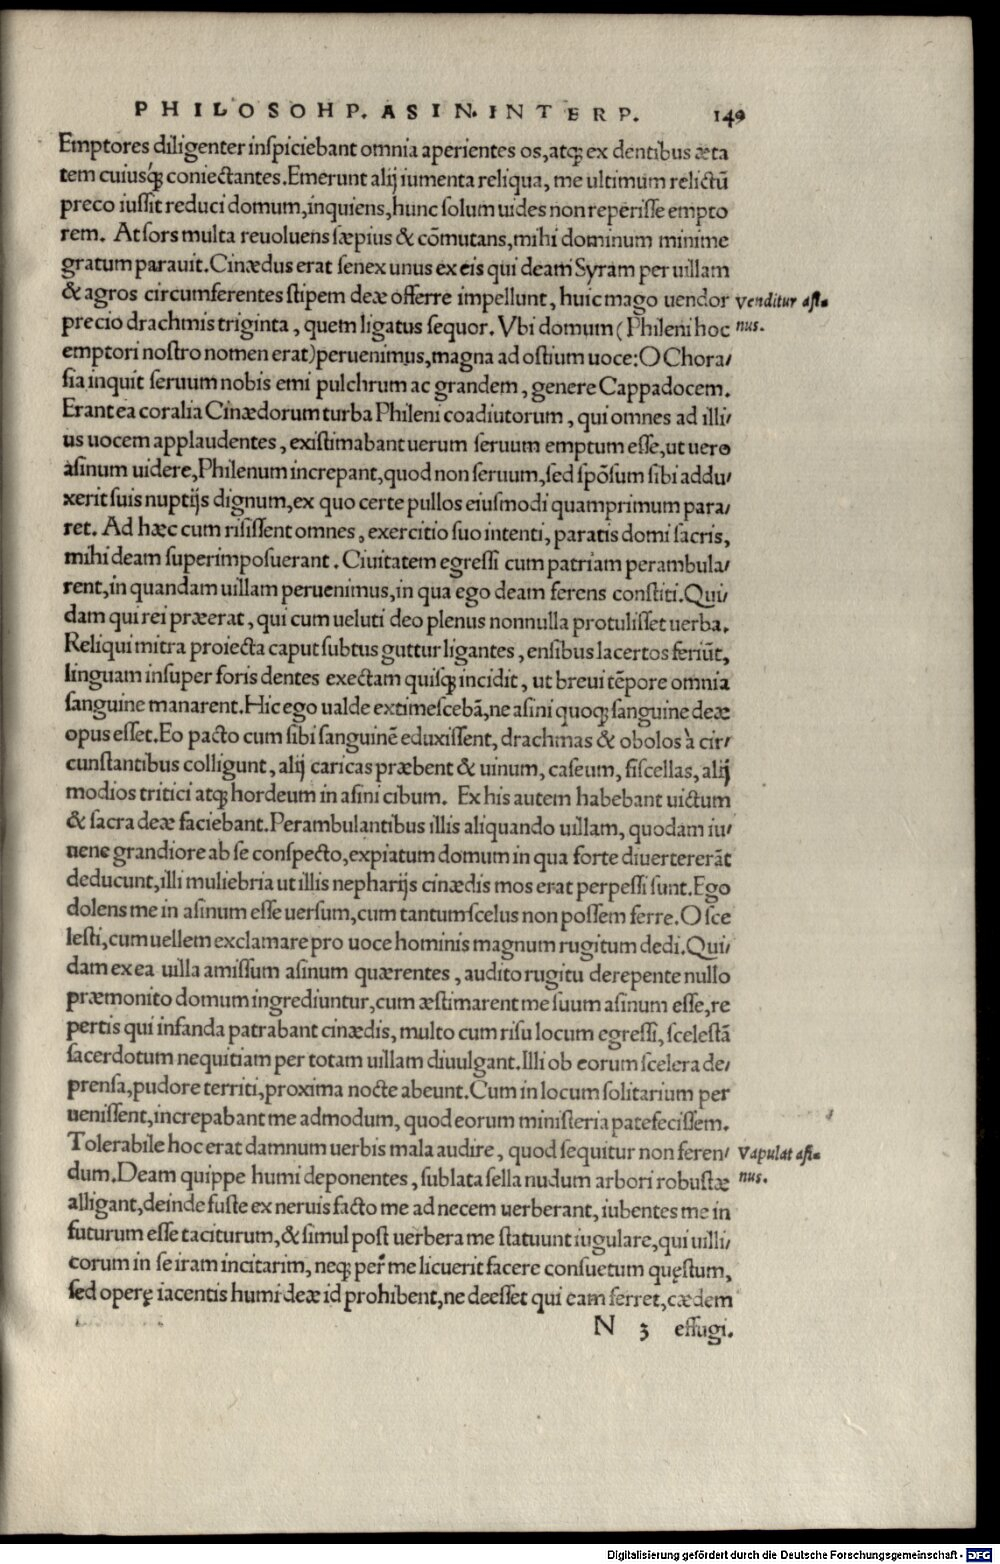 PHILOSOHP. ASIN. INTERP. 149
Emptores diligenter inspiciebant omnia aperientes os, atqꝫ ex dentibus æta
tem cuiusqꝫ coniectantes. Emerunt alij iumenta reliqua, me ultimum relictũ
preco iussit reduci domum, inquiens, hunc solum uides non reperisse empto
rem. At sors multa reuoluens sæpius & cõmutans, mihi dominum minime
gratum parauit. Cinædus erat senex unus ex eis qui deam Syram per uillam
& agros circumferentes stipem deæ offerre impellunt, huic mago uendor
Venditur asi⸗
nus.
precio drachmis triginta, quem ligatus sequor. Vbi domum (Phileni hoc
emptori nostro nomen erat) peruenimus, magna ad ostium uoce: O Chora/
sia inquit seruum nobis emi pulchrum ac grandem, genere Cappadocem.
Erant ea coralia Cinædorum turba Phileni coadiutorum, qui omnes ad illi/
us uocem applaudentes, existimabant uerum seruum emptum esse, ut uero
asinum uidere, Philenum increpant, quod non seruum, sed spõsum sibi addu/
xerit suis nuptijs dignum, ex quo certe pullos eiusmodi quamprimum para/
ret. Ad hæc cum risissent omnes, exercitio suo intenti, paratis domi sacris,
mihi deam superimposuerant. Ciuitatem egressi cum patriam perambula/
rent, in quandam uillam peruenimus, in qua ego deam ferens constiti. Qui/
dam qui rei præerat, qui cum ueluti deo plenus nonnulla protulisset uerba.
Reliqui mitra proiecta caput subtus guttur ligantes, ensibus lacertos feriũt,
linguam insuper foris dentes exectam quisqꝫ incidit, ut breui tẽpore omnia
sanguine manarent. Hic ego ualde extimescebã, ne asini quoqꝫ sanguine deæ
opus esset. Eo pacto cum sibi sanguinẽ eduxissent, drachmas & obolos à cir/
cunstantibus colligunt, alij caricas præbent & uinum, caseum, fiscellas, alij
modios tritici atqꝫ hordeum in asini cibum. Ex his autem habebant uictum
& sacra deæ faciebant. Perambulantibus illis aliquando uillam, quodam iu/
uene grandiore ab se conspecto, expiatum domum in qua forte diuertererãt
deducunt, illi muliebria ut illis nepharijs cinædis mos erat perpessi sunt. Ego
dolens me in asinum esse uersum, cum tantum scelus non possem ferre. O sce
lesti, cum uellem exclamare pro uoce hominis magnum rugitum dedi. Qui/
dam ex ea uilla amissum asinum quærentes, audito rugitu derepente nullo
præmonito domum ingrediuntur, cum æstimarent me suum asinum esse, re
pertis qui infanda patrabant cinædis, multo cum risu locum egressi, scelestã
sacerdotum nequitiam per totam uillam diuulgant. Illi ob eorum scelera de/
prensa, pudore territi, proxima nocte abeunt. Cum in locum solitarium per
uenissent, increpabant me admodum, quod eorum ministeria patefecissem.
Tolerabile hoc erat damnum uerbis mala audire, quod sequitur non feren/
Vapulat asi⸗
nus.
dum. Deam quippe humi deponentes, sublata sella nudum arbori robustæ
alligant, deinde fuste ex neruis facto me ad necem uerberant, iubentes me in
futurum esse taciturum, & simul post uerbera me statuunt iugulare, qui uilli/
corum in se iram incitarim, neqꝫ per me licuerit facere consuetum quęstum,
sed operę iacentis humi deæ id prohibent, ne deesset qui eam ferret, cædem
N 3 effugi.
Digitalisierung gefördert durch die Deutsche Forschungsgemeinschaft - DFG